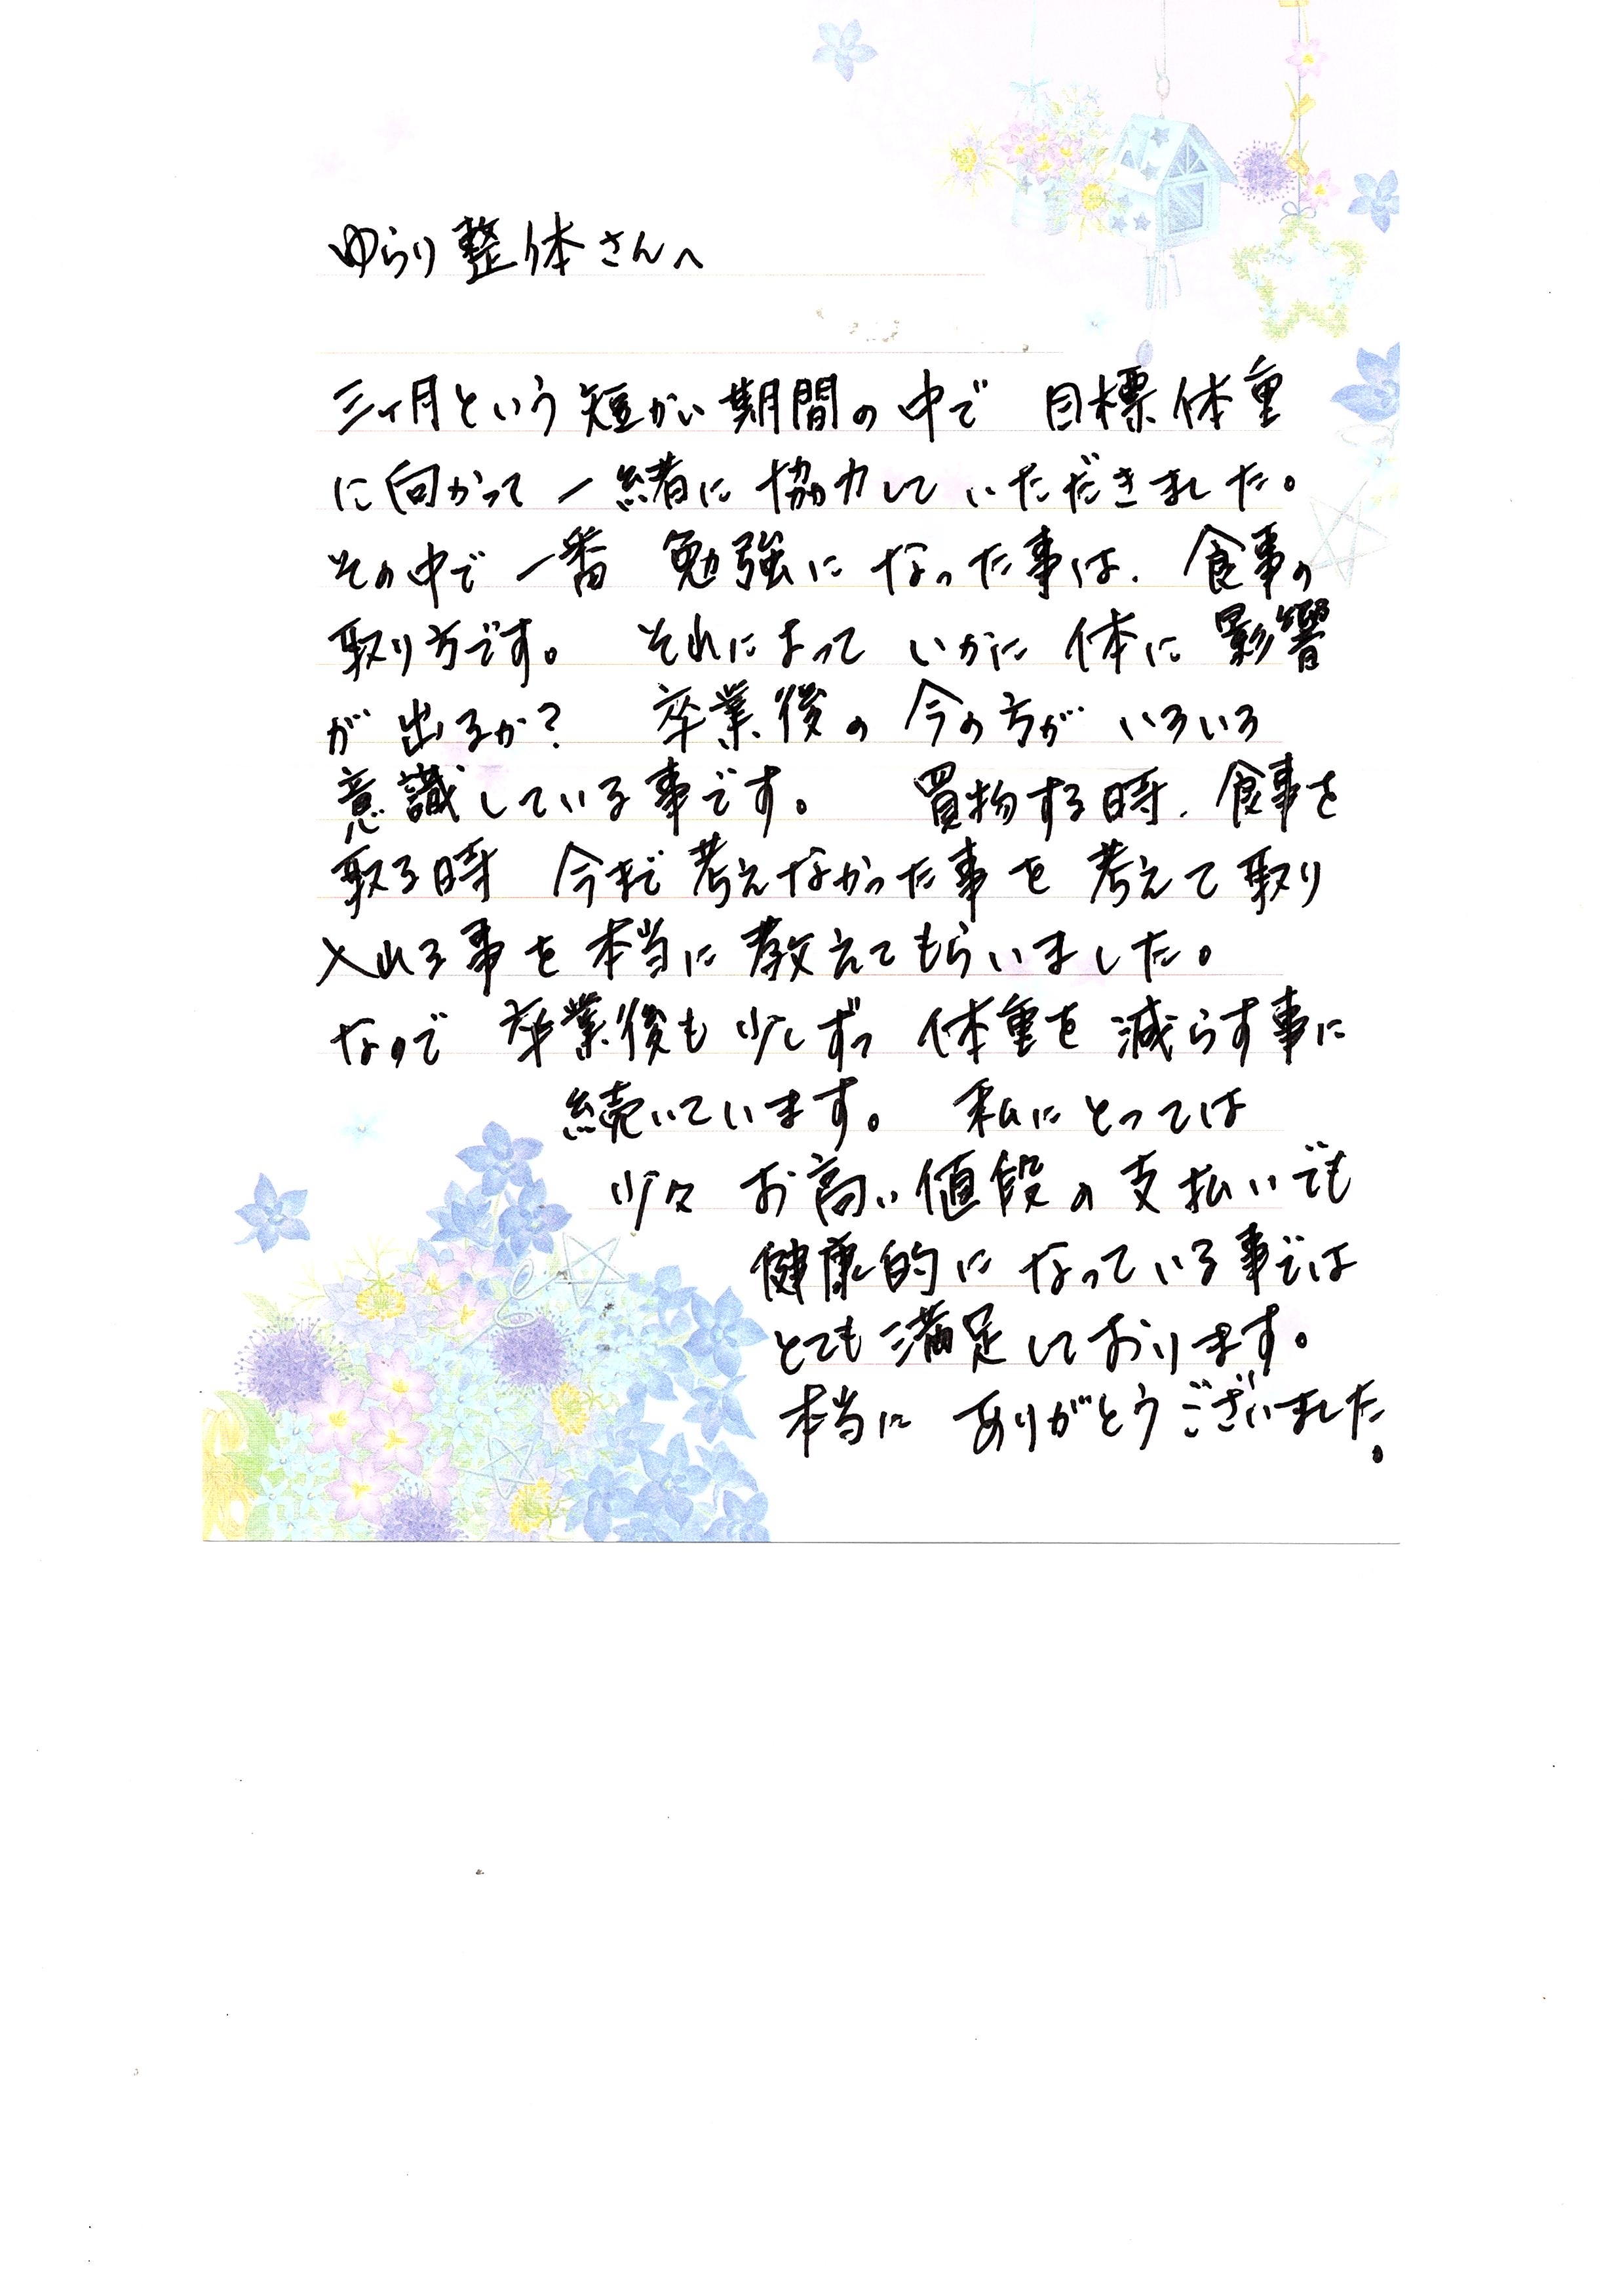 ゆらり整体さんへ
三ヶ月という短かい期間の中で 目標体重
に向かって一緒に協力していただきました。
その中で一番 勉強になった事は、食事の
取り方です。 それによって いかに 体に影響
が出るか? 卒業後の今の方が いろいろ
意識している事です。 買物する時、食事を
取る時 今まで考えなかった事を 考えて取り
入れる事を本当に教えてもらいました。
なので 卒業後も少しずつ 体重を減らす事に
続いています。 私にとっては
少々 お高い値段の支払いでも
健康的になっている事では
とても満足しております。
本当に ありがとうございました。